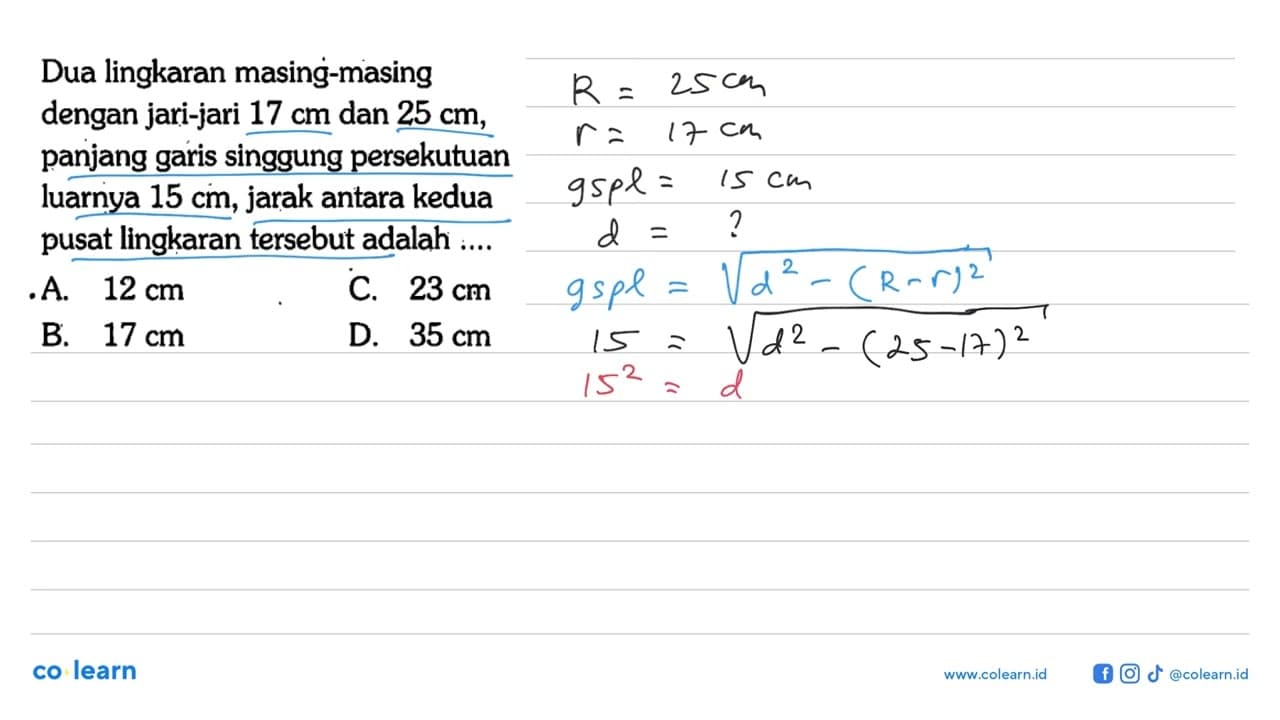 Dua lingkaran masing-masing
dengan jari-jari 17 cm dan 25 cm,
panjang garis singgung persekutuan
luarnya 15 cm, jarak antara kedua
pusat lingkaran tersebut adalah ....
A. 12 cm C. 23 cm
B. 17 cm D. 35 cm
R = 25 cm
r = 17 cm
gspl = 15 cm
d = ?
gspl = √d² - (R-r)²
15 = √d² - (25-17)²
15² = d
co learn
www.colearn.id @colearn.id